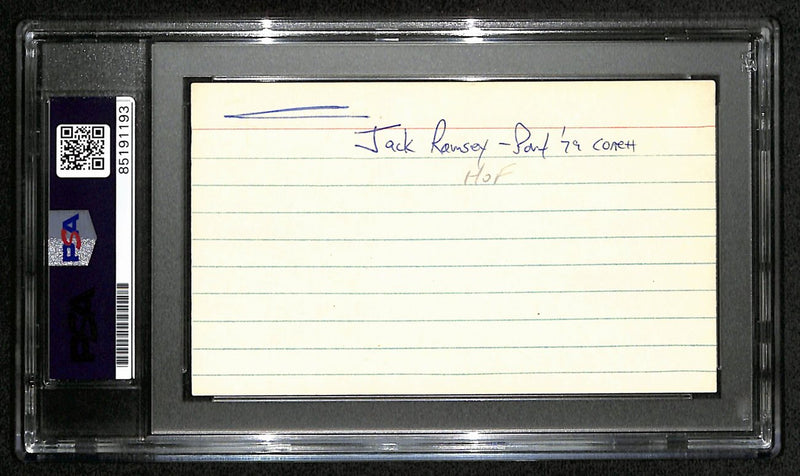 Jack Ramsey - Port '79 COACH
HOF
85191193
PSA
PSA